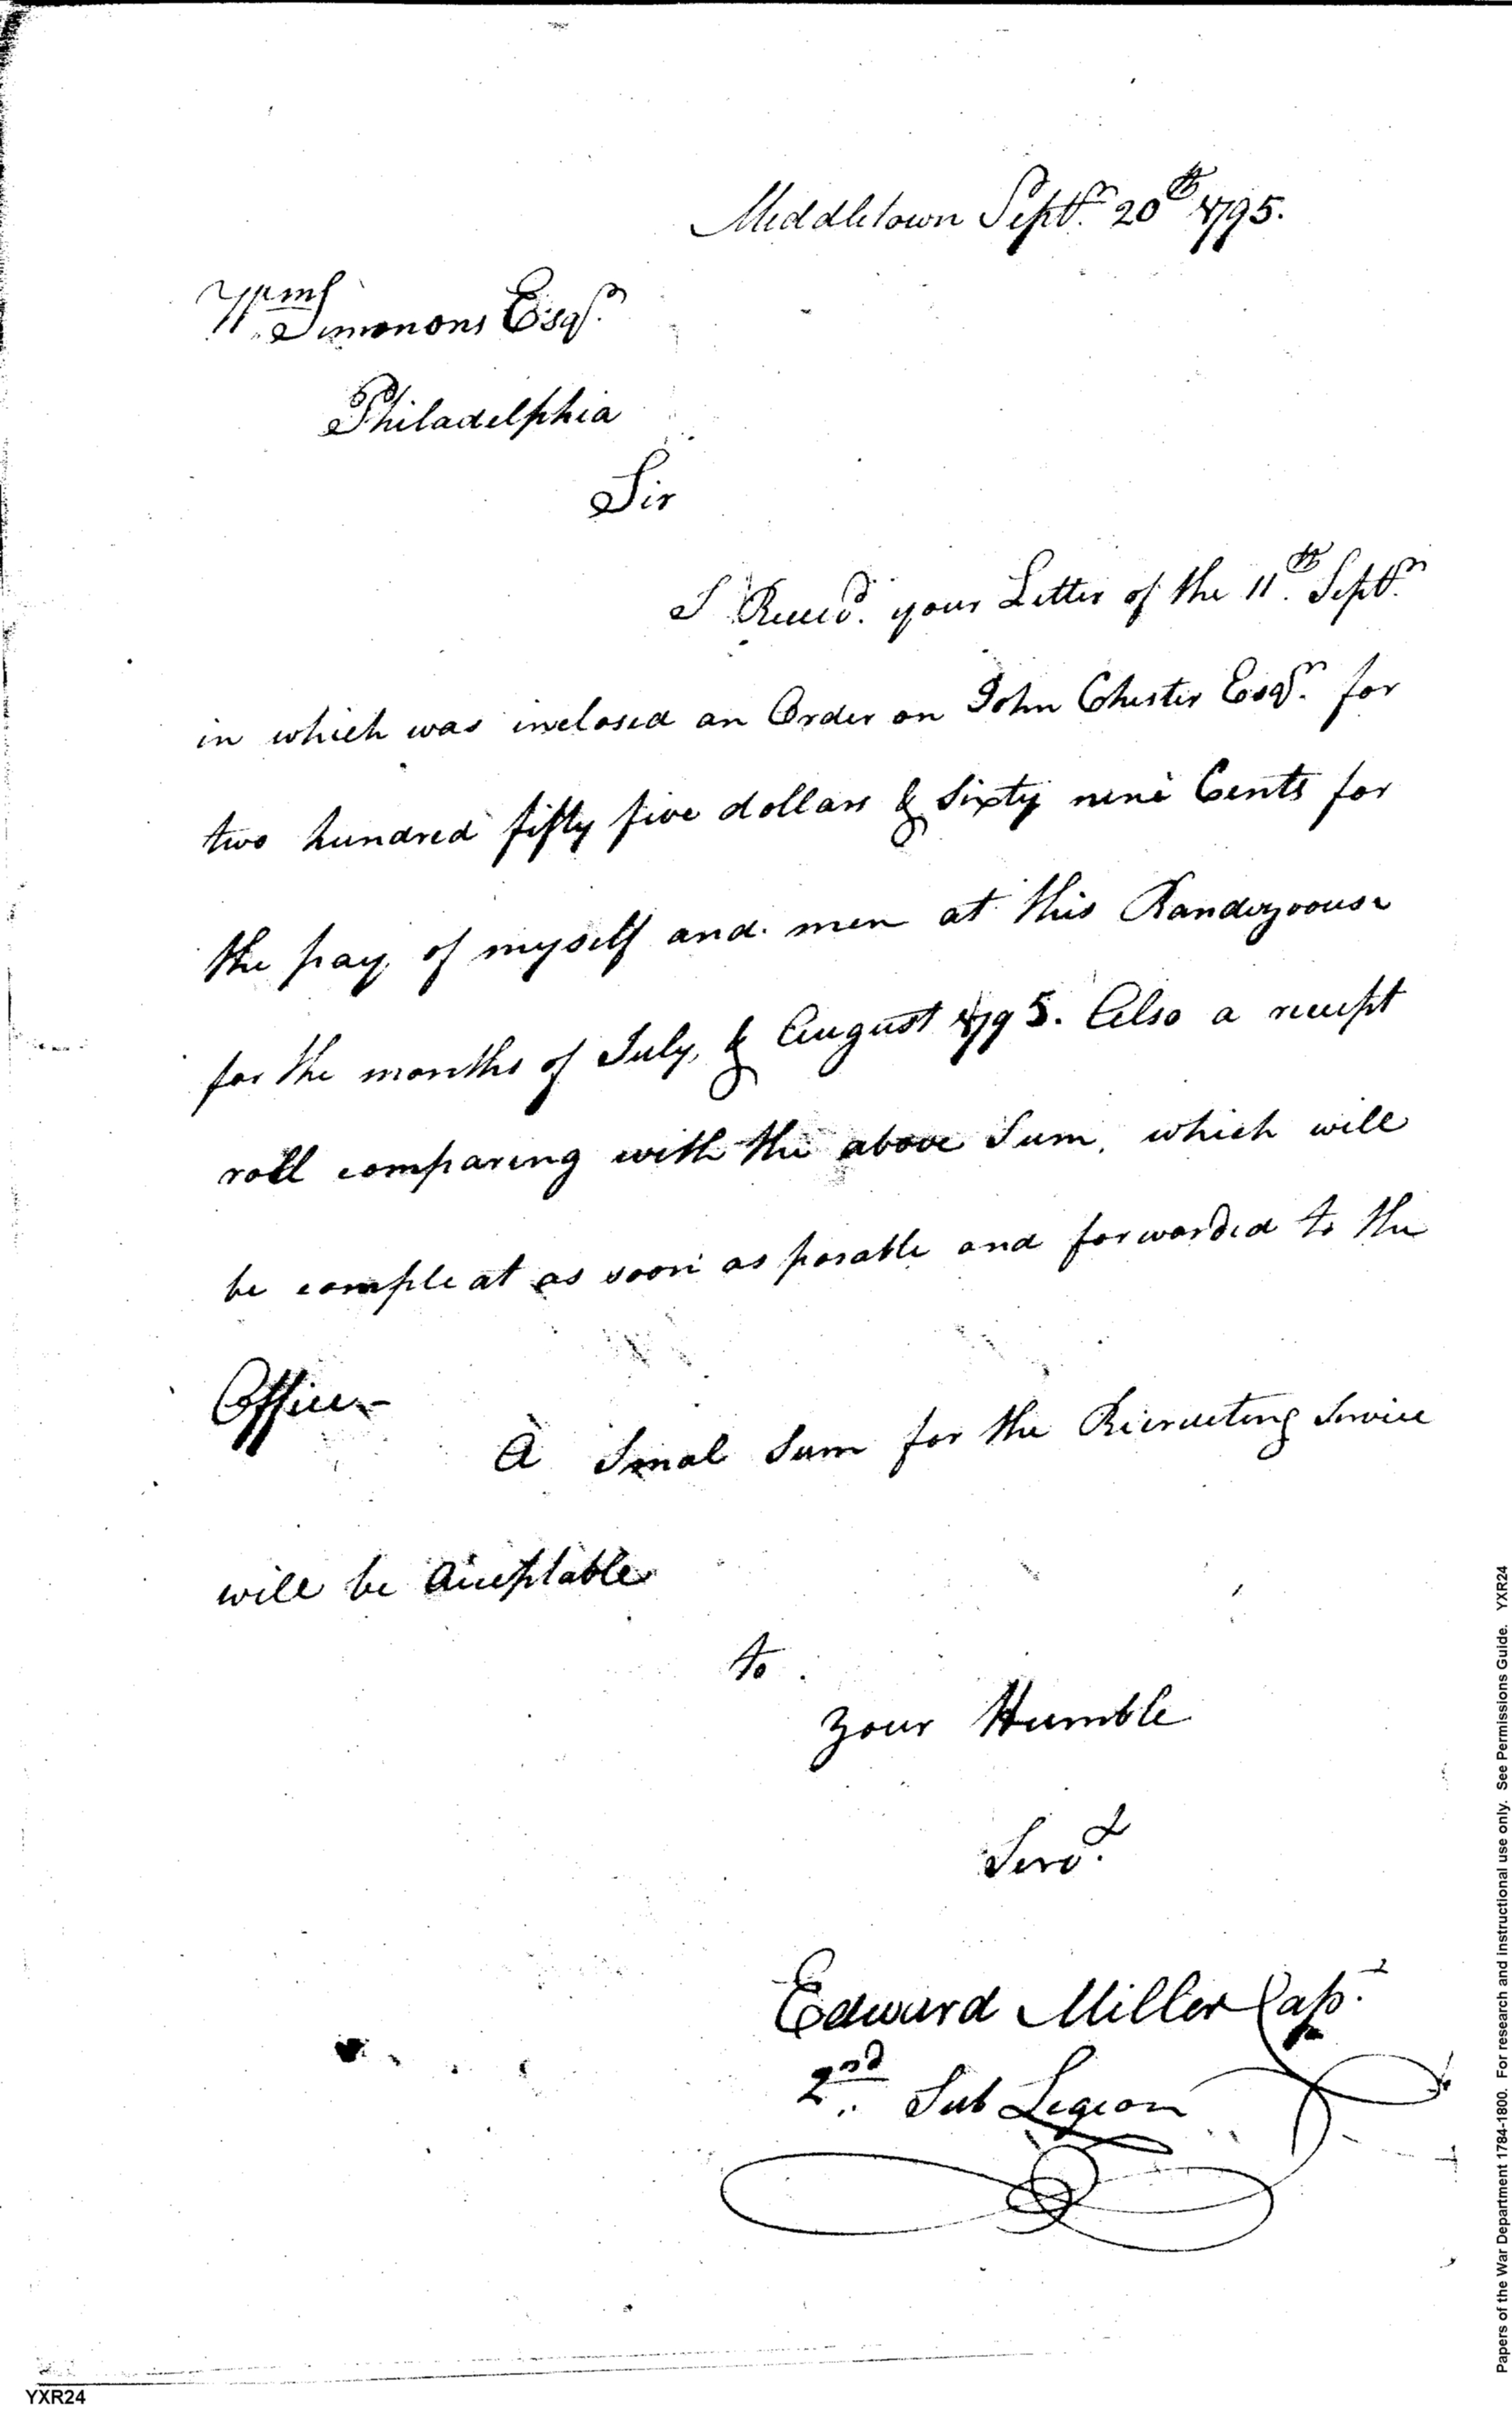 Middletown Septr. 20th 1795.
Wms Simonons Esqr.
Philadelphia
Sir
I Receid. your Letter of the 11th. Septr.
in which was inclosed an Order on John Chester Esqr. for
two hundred fifty five dollars & Sixty nine Cents for
the pay of myself and men at this Randezvouse
for the months of July, & August 1795. Also a receipt
roll comparing with the above Sum, which will
be compleat as soon as posable and forwarded to the
Office-
A Smal Sum for the Recrueting Service
will be Acceptable
to
your Humble
Servt.
Edward Miller Capt.
2nd Sub Legion
YXR24
Papers of the War Department 1784-1800. For research and instructional use only. See Permissions Guide. YXR24